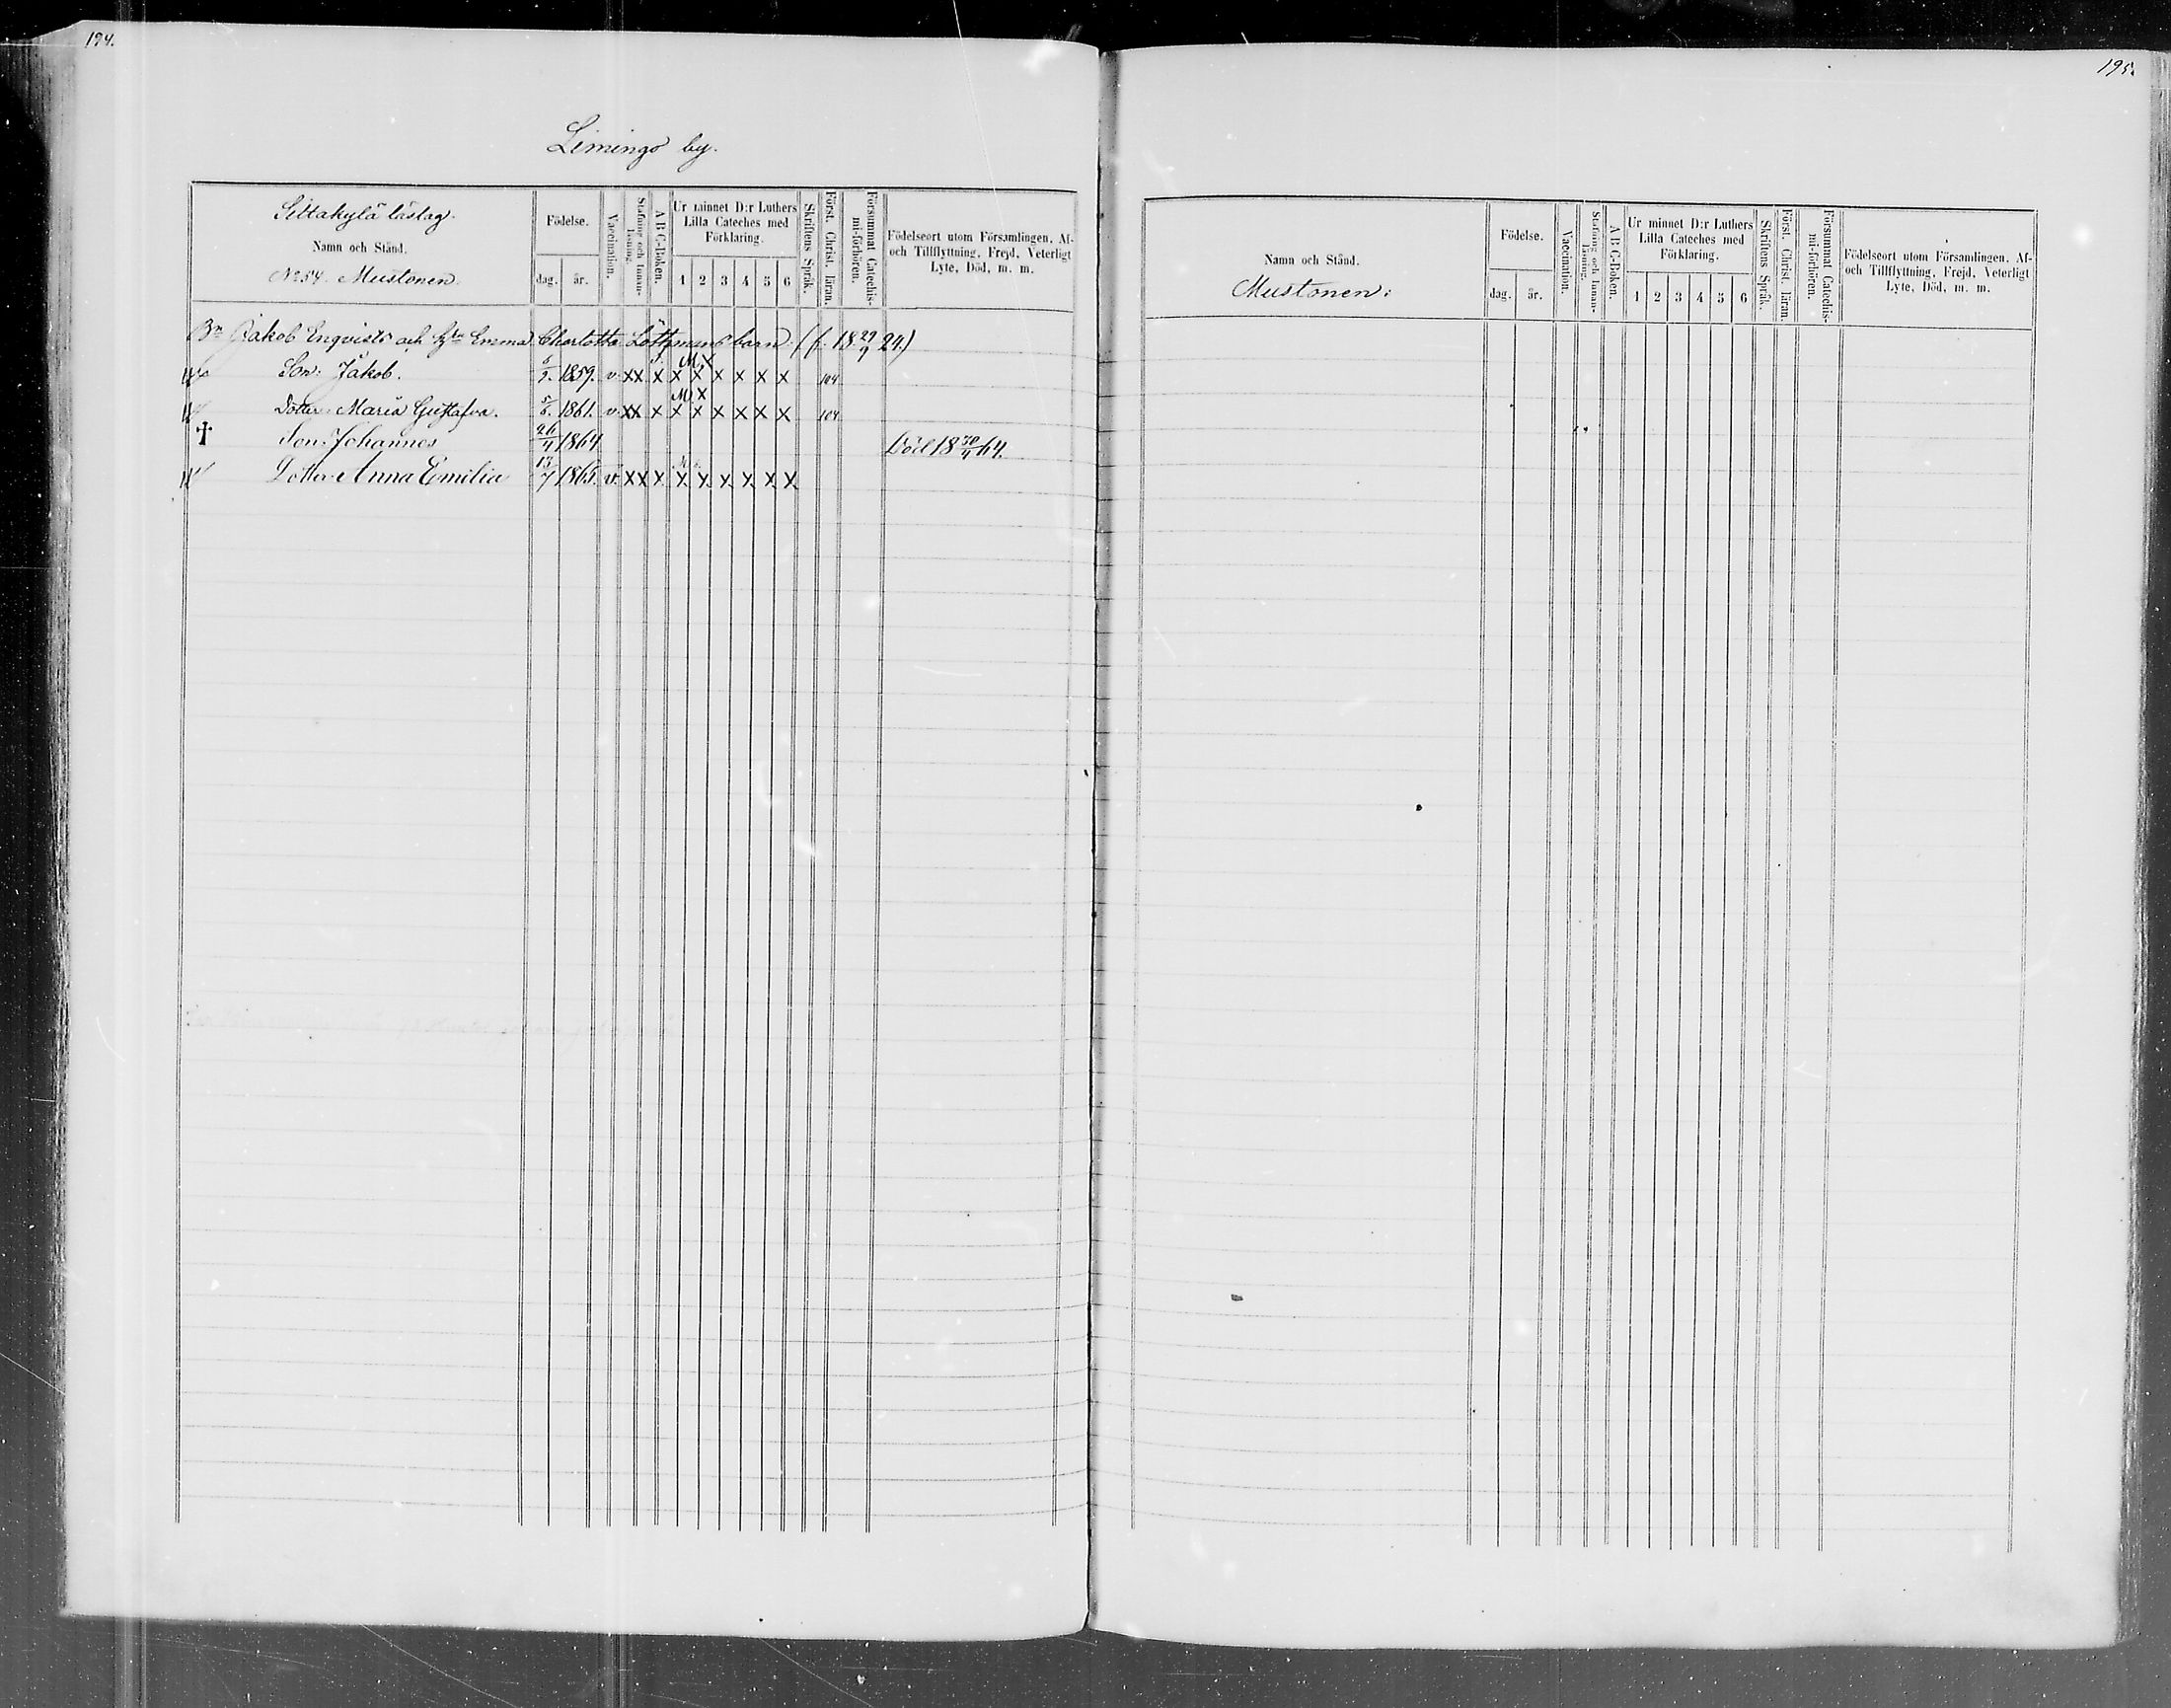 194.
Limingo by.
Siltakylä läslag.
Namn och Stånd.
No 54. Mustonen.
Födelse.
dag. år.
Vaccination.
Stafning och Innan-läsning.
A B C-Boken.
Ur minnet D:r Luthers Lilla Cateches med Förklaring.
1 2 3 4 5 6
Skriftens Språk.
Först. Christ. läran.
Försummat Catechis-mi-förhören.
Födelseort utom Församlingen, Af-och Tillflyttning, Frejd, Veterligt Lyte, Död, m. m.
Bn Jakob Enqvists och Hu Emma Charlotta Löthmans barn: (f. 18 29/9 24.)
Son: Jakob. 6/9. 1859. v. XX X X X X X X X 104
Dotter: Maria Gustafva. 5/6. 1861. v. XX X X X X X X X 104
† Son: Johannes 26/4 1864 Död 18 30/4 64.
Dotter: Anna Emilia 13/7 1865. v. XX X X X X X X X
195.
Namn och Stånd.
Mustonen:
Födelse.
dag. år.
Vaccination.
Stafning och Innan-läsning.
A B C-Boken.
Ur minnet D:r Luthers Lilla Cateches med Förklaring.
1 2 3 4 5 6
Skriftens Språk.
Först. Christ. läran.
Försummat Catechis-mi-förhören.
Födelseort utom Församlingen, Af-och Tillflyttning, Frejd, Veterligt Lyte, Död, m. m.